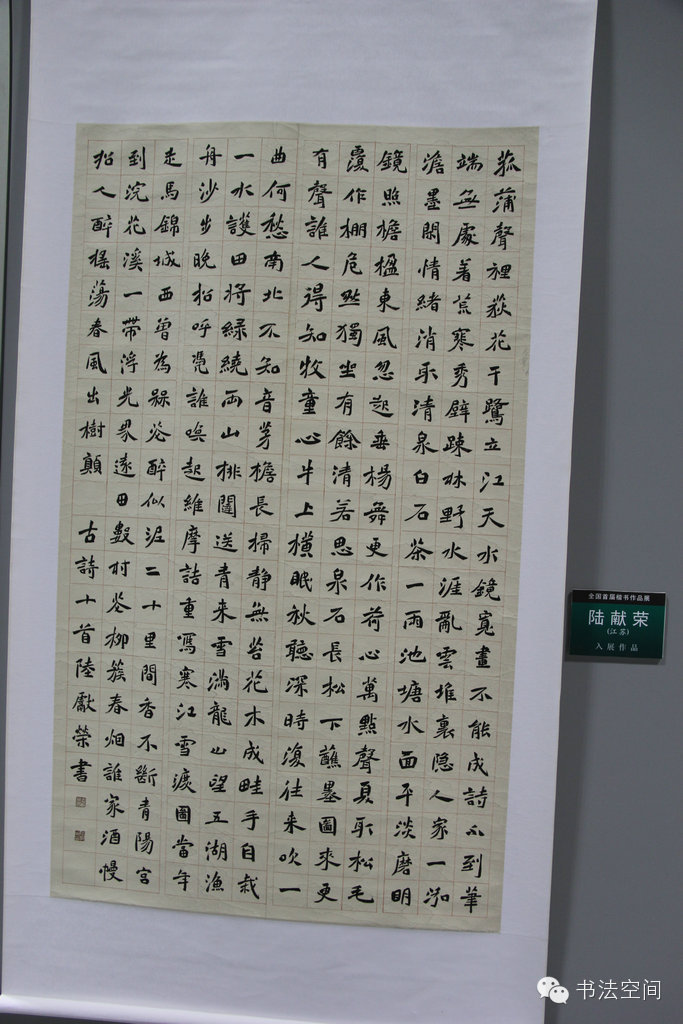 菰蒲聲裡荻花干鷺立江天水鏡寬畫不能成詩不到筆
端無處著荒寒秀壁疎林野水涯亂雲堆裏隐人家一泓
澹墨閑情緒消取清泉白石茶一雨池塘水面平淡磨明
鏡照檐楹東風忽起垂楊舞更作荷心萬點聲夏取松毛
覆作棚危然獨坐有餘清若思泉石長松下蘸墨圖來更
有聲誰人得知牧童心牛上橫眠秋聽深時復往來吹一
曲何愁南北不知音茅檐長掃靜無苔花木成畦手自栽
一水護田將綠繞兩山排闥送青來雪滿龍山望五湖漁
舟沙步晚招呼凭誰喚起維摩詰重寫寒江雪漁圖當年
走馬錦城西曾為槑花醉似泥二十里間香不斷青陽宮
到浣花溪一帶浮光界遠田數村花柳簇春烟誰家酒幔
招人醉搖蕩春風出樹顛 古詩十首陸獻榮書
全国首届楷书作品展
陆献荣
(江苏)
入展作品
书法空间